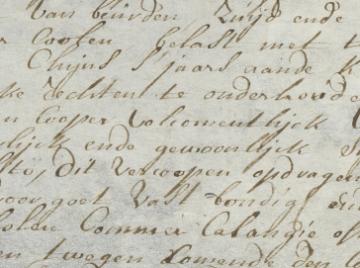 van beurden Zuijd ende
r Coolen belast met t
Chijns s'jaars aande k
ke Rechten te onderhoude
n Cooper volcomentlijck
lijck ende gewoonlijck
sto, dit vercoopen opdragen
voor goet vast bondig en
solen Commer Calangie of
en twegen komende den